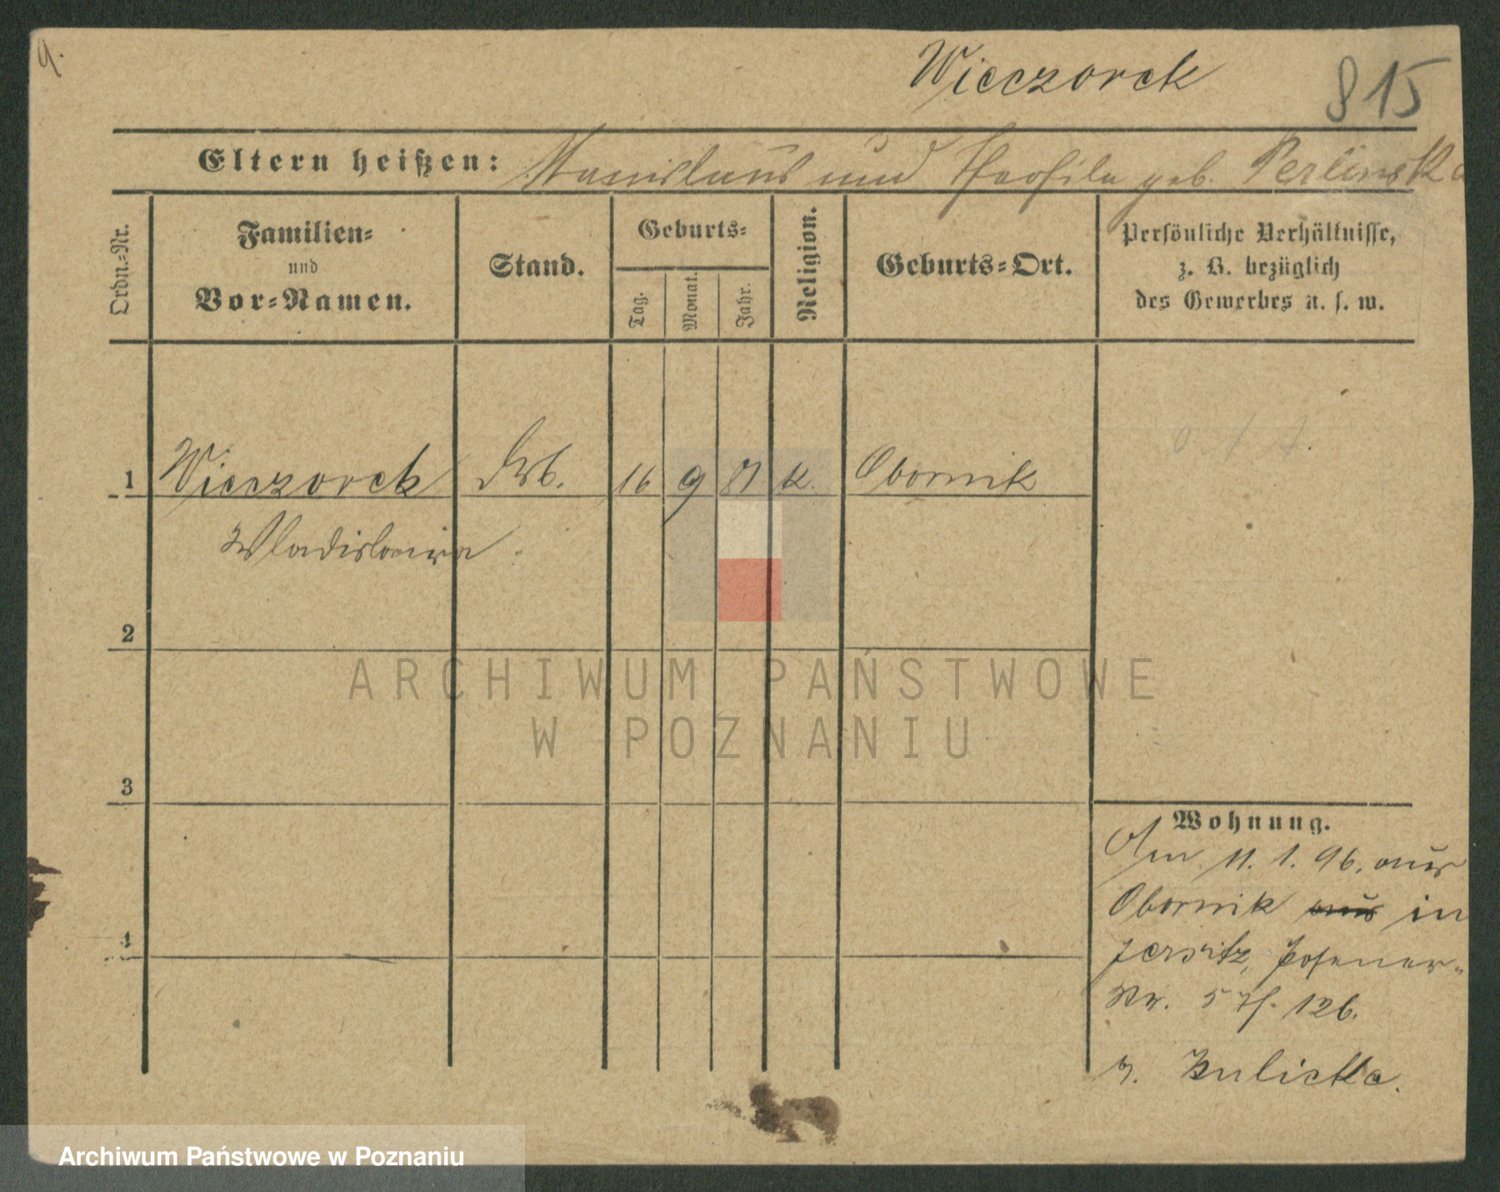 9.
Wieczorek
815
Eltern heißen: Stanislaus und Theofila geb. Perlinska
Ordn.-Nr.
Familien-
und
Vor-Namen.
Stand.
Geburts-
Tag.
Monat.
Jahr.
Religion.
Geburts-Ort.
Persönliche Verhältnisse,
z. B. bezüglich
des Gewerbes u. s. w.
1 Wieczorek 16 9 k. Obornik
Wladislawa
2
ARCHIWUM PAŃSTWOWE
W POZNANIU
3
Wohnung.
Am 11.1.96. aus
Obornik aus in
Jersitz, Posener-
126.
4
Archiwum Państwowe w Poznaniu